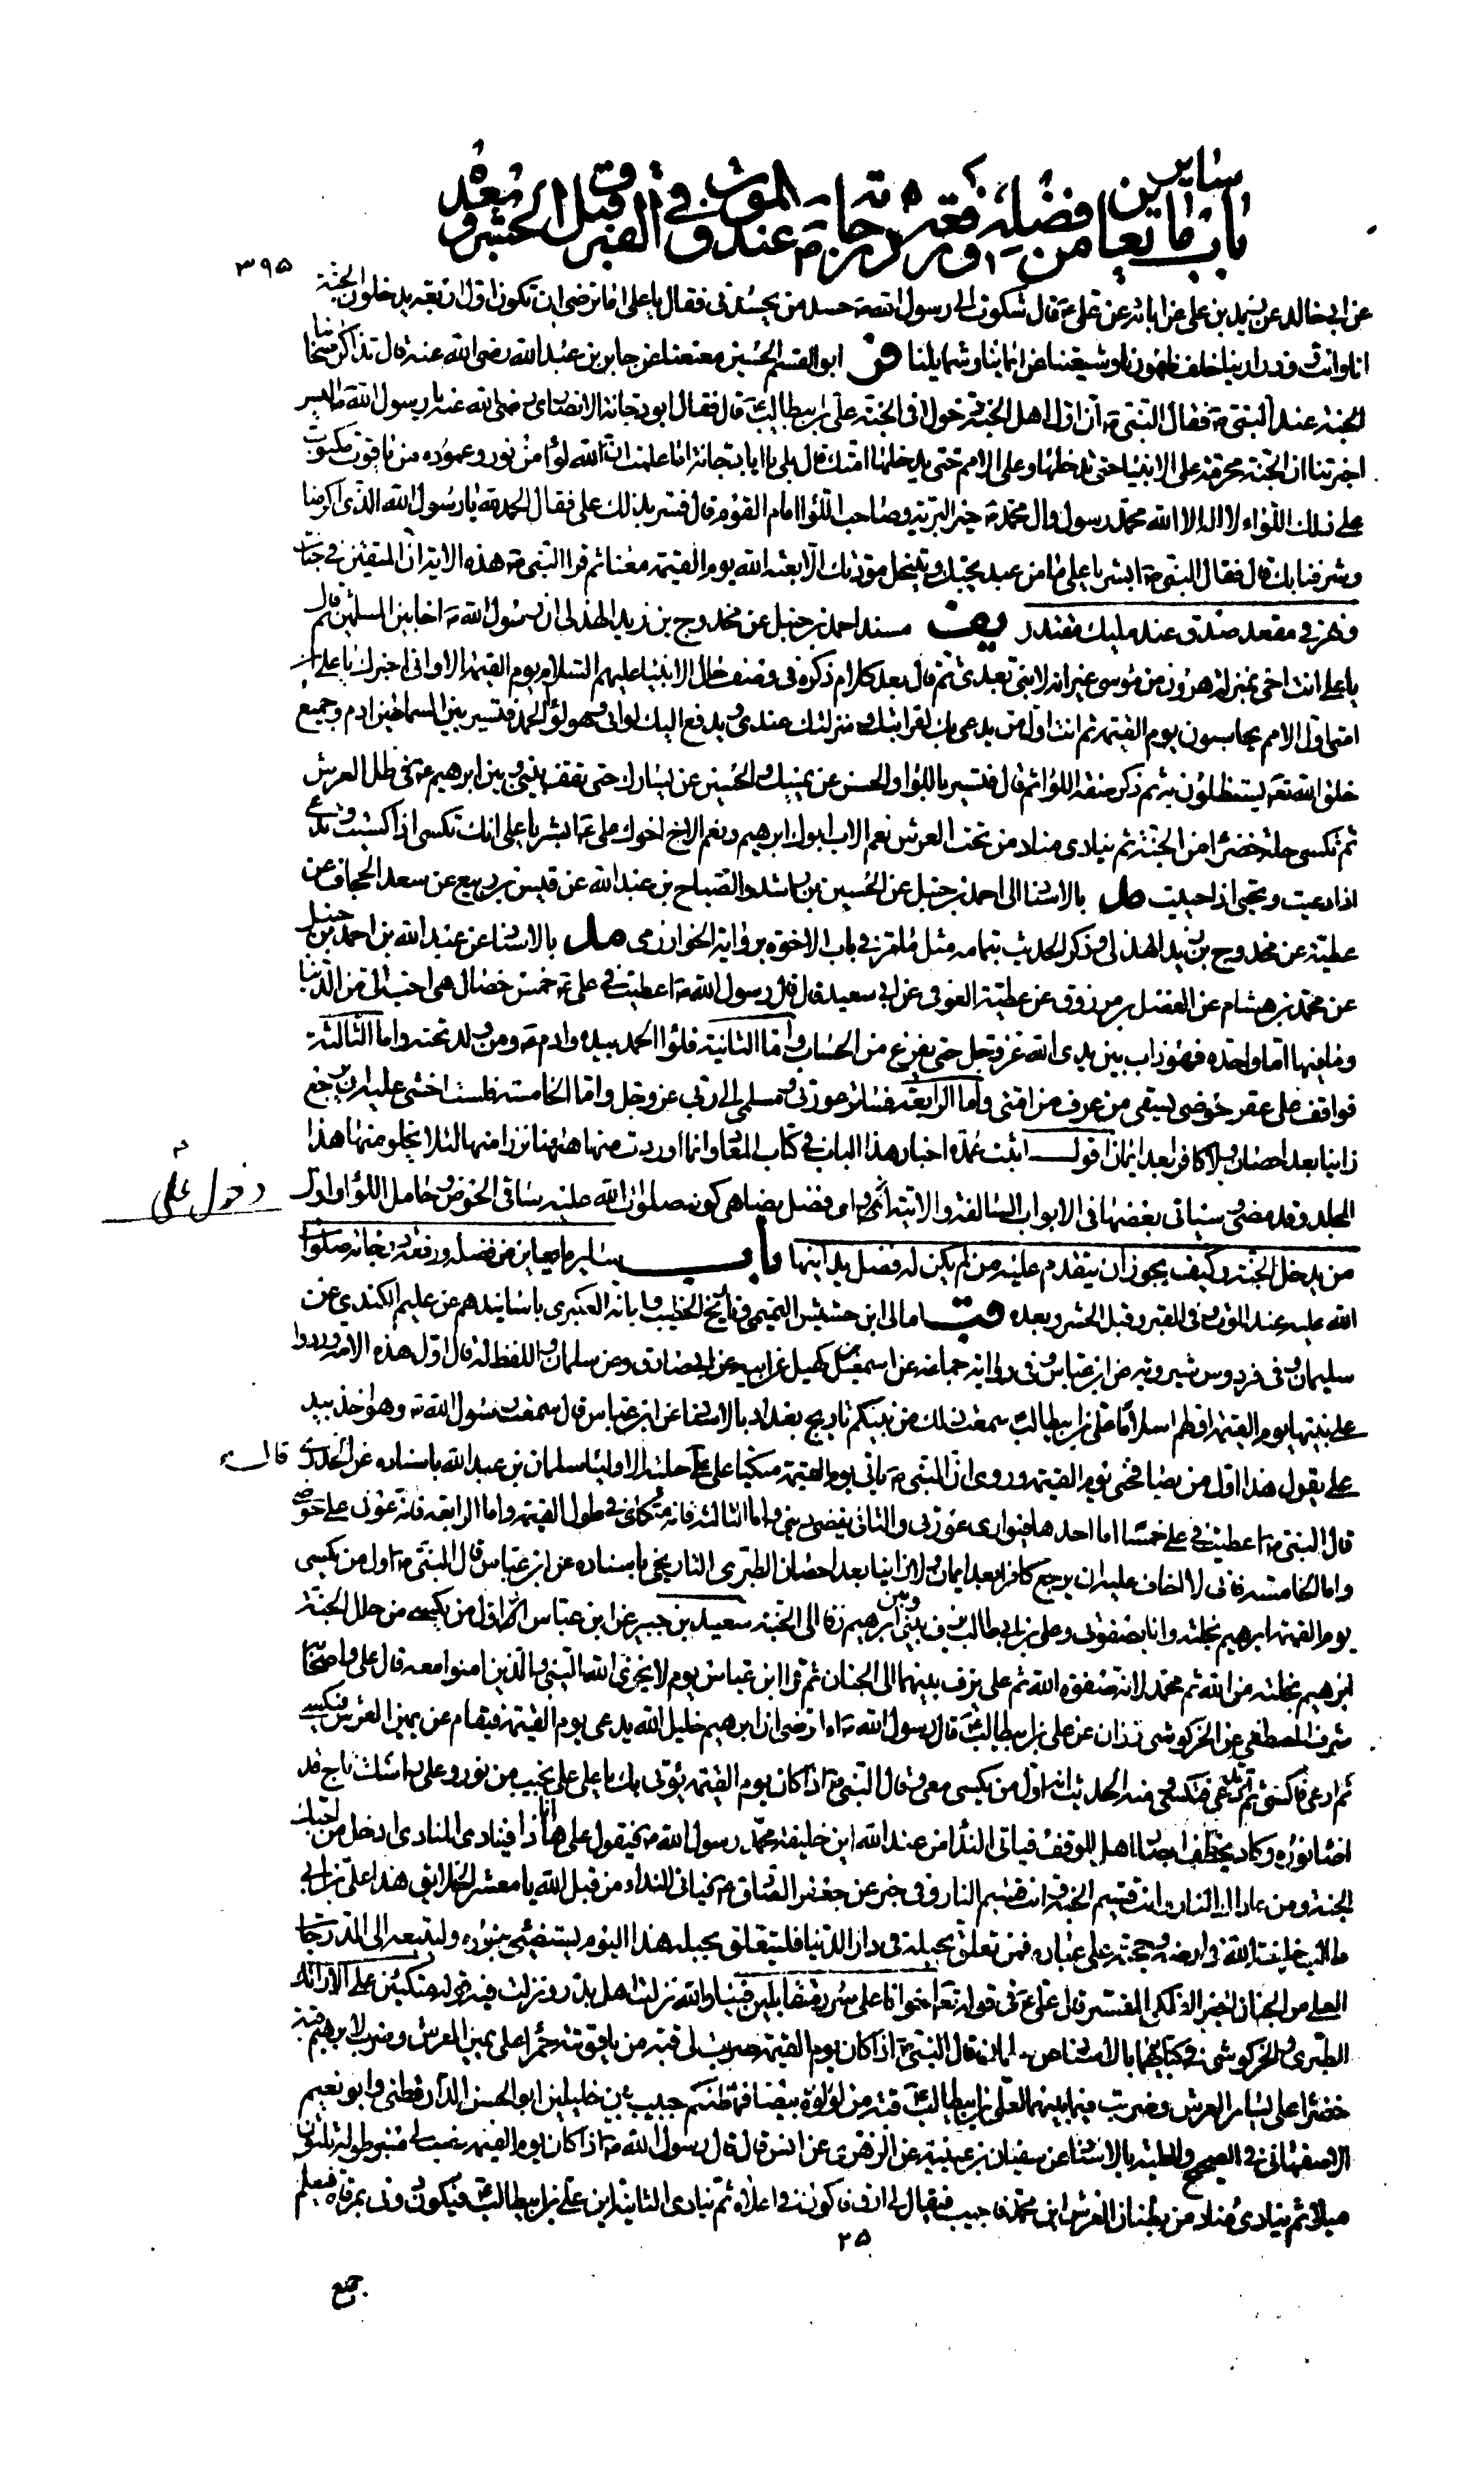 باب ما يعاين من فضله ورفعة درجاته عند الموت وفي القبر وقبل الحشر وبعده ساير
٣٩٥
عن ابي خالد عن زيد بن علي عن ابائه عن علي ع قال شكوت الى رسول الله ص حسد من يحسدني فقال يا علي اما ترضى ان تكون اول اربعة يدخلون الجنة
انا وانت وذرارينا خلف ظهورنا وشيعتنا عن ايماننا وشمايلنا فر ابو القسم الحسين معنعنا عن جابر بن عبد الله رضي الله عنه قال تذاكر اصحابنا
الجنة عند النبي ص فقال النبي ص ان اول اهل الجنة دخولا في الجنة علي بن ابيطالب ع قال فقال ابو دجانة الانصاري رضي الله عنه يا رسول الله ص اليس
اخبرتنا ان الجنة محرمة على الانبياء حتى تدخلها وعلى الامم حتى يدخلها امتك قال بلى يا ابا دجانة اما علمت ان لله لواء من نور وعموده من ياقوت مكتوب
على ذلك اللواء لا اله الا الله محمد رسول وال محمد ص خير البرية وصاحب اللواء امام القوم قال فسر بذلك علي فقال الحمد لله يا رسول الله الذي اكرمنا
وشرفنا بك قال فقال النبي ص ابشر يا علي ما من عبد يحبك وينتحل مودتك الا بعثه الله يوم القيمة معنا ثم قرا النبي ص هذه الاية ان المتقين في جنات
ونهر في مقعد صدق عند مليك مقتدر يف مسند احمد بن حنبل عن مخدوج بن زيد الهذلي ان رسول الله ص اخا بين المسلمين ثم قال
يا علي انت اخي بمنزلة هرون من موسى غير انه لا نبي بعدي ثم قال بعد كلام ذكره في وصف حال الانبياء عليهم السلام يوم القيمة الا واني اخبرك يا علي ان
امتي اول الامم يحاسبون يوم القيمة ثم انت اول من يدعى بك لقرابتك ومنزلتك عندي ويدفع اليك لوائي وهو لواء الحمد فتسير بين السماطين ادم وجميع
خلق الله تعه يستظلون به ثم ذكر صفة اللواء ثم قال فتسير باللواء والحسن عن يمينك والحسين عن يسارك حتى تقف بيني وبين ابرهيم ع في ظل العرش
ثم تكسى حلة خضراء من الجنة ثم ينادي مناد من تحت العرش نعم الاب ابوك ابرهيم ونعم الاخ اخوك علي ع ابشر يا علي انك تكسى اذا كسيت وتدعى
اذا دعيت وتحيى اذا حييت مل بالاسناد الى احمد بن حنبل عن الحسين بن راشد والصباح بن عبد الله عن قيس بن ربيع عن سعد الجحاف عن
عطية عن مخدوج بن زيد الهذلي وذكر الحديث بتمامه مثل ما مر في باب الاخوة برواية الخوارزمي مد بالاسناد عن عبد الله بن احمد بن حنبل
عن محمد بن هشام عن الفضل بن مرزوق عن عطية العوفي عن ابي سعيد قال قال رسول الله ص اعطيت في علي ع خمس خصال هي احب الي من الدنيا
وما فيها اما واحدة فهو ذاب بين يدي الله عز وجل حتى يفرغ من الحساب واما الثانية فلواء الحمد بيده وادم ع ومن ولد تحته واما الثالثة
فواقف على عقر حوضي يسقي من عرف من امتي واما الرابعة فساتر عورتي ومسلمي الى ربي عز وجل واما الخامسة فلست اخشى عليه ان يرجع
زانيا بعد احصان ولا كافرا بعد ايمان اقول اثبت عمدة اخبار هذا الباب في كتاب المعاد وانما اوردت منها ههنا نزرا منها لئلا يخلو منها هذا
المجلد وقد مضى وسياتي بعضها في الابواب السالفة والاتية واي فضل يضاهي كونه صلوات الله عليه ساقي الحوض وحامل اللواء واول
دخول علي
من يدخل الجنة وكيف يجوز ان يتقدم عليه من لم يكن له فضل يدانيها باب ساير ما يعاين من فضله ورفعة درجاته صلوات
الله عليه عند الموت وفي القبر وقبل الحشر وبعده قب امالي ابن حشيش التميمي وتاريخ الخطيب وابانة العكبري باسانيدهم عن عليم الكندي عن
سليمان وفي فردوس شيرويه عن ابن عباس وفي رواية جماعة عن اسمعيل بن كهيل عن ابيه عن ابي صادق وعن سلمان واللفظ له قال اول هذه الامة ورودا
على نبيها يوم القيمة اقدمهم اسلاما علي بن ابيطالب سمعت ذلك من نبيكم تاريخ بغداد بالاسناد عن ابن عباس قال سمعت رسول الله ص وهو اخذ بيد
علي يقول هذا اول من يصافحني يوم القيمة وروي ان النبي ص ياتي يوم القيمة متكيا على علي حلية الاولياء سلمان بن عبد الله باسناده عن الخدري قال
قال النبي ص اعطيت في علي خمسا اما احدها فيواري عورتي والثاني يقضي ديني واما الثالثة فانه متكاي في طول القيمة واما الرابعة فانه عوني على حوضي
واما الخامسة فاني لا اخاف عليه ان يرجع كافرا بعد ايمان ولا زانيا بعد احصان الطبري التاريخي باسناده عن ابن عباس قال النبي ص اول من يكسى
يوم القيمة ابرهيم بخلته وانا بصفوتي وعلي بن ابي طالب يزف بيني وبين ابرهيم زفا الى الجنة سعيد بن جبير عن ابن عباس انه اول من يكسى من حلل الجنة
ابرهيم بخلته من الله ثم محمد لانه صفوة الله ثم علي يزف بينهما الى الجنان ثم قرا ابن عباس يوم لا يخزي الله النبي والذين امنوا معه قال علي واصحابه
شرف المصطفى عن الخركوشي زاذان عن علي بن ابيطالب ع قال رسول الله ص اما ترضى ان ابرهيم خليل الله يدعى يوم القيمة فيقام عن يمين العرش فيكسى
ثم ادعى فاكسى ثم تدعى فتكسى وفي منه الحديث انه اول من يكسى معي وقال النبي ص اذا كان يوم القيمة يؤتى بك يا علي على نجيب من نور وعلى راسك تاج قد
اضاء نوره وكاد يخطف ابصار اهل الموقف فياتي النداء من عند الله اين خليفة محمد رسول الله ص فيقول علي ها انا ذا فينادي المنادي ادخل من احبك
الجنة ومن عاداك النار وانت قسيم الجنة وانت قسيم النار وفي خبر عن جعفر الصادق ع فياتي النداء من قبل الله يا معشر الخلايق هذا علي بن ابي
طالب خليفة الله في ارضه وحجته على عباده فمن تعلق بحبله في دار الدنيا فليتعلق بحبله هذا اليوم ليستضيء بنوره وليتبعه الى الدرجات
العلى من الجنان جعفر الفلكي المفسر قال علي ع في قوله تعه اخوانا على سرر متقابلين فينا والله نزلت اهل بدر ونزلت فيه قوله متكئين على الارائك
الطبري والخركوشي في كتابيهما بالاسناد عن سلمان قال النبي ص اذا كان يوم القيمة ضربت لي قبة من ياقوتة حمراء على يمين العرش وضرب لابرهيم قبة
خضراء على يسار العرش وضربت فيما بينهما لعلي بن ابيطالب ع قبة من لؤلؤة بيضاء فما ظنكم بحبيب بين خليلين ابو الحسن الدارقطني وابو نعيم
الاصفهاني في الصحيح والحلية بالاسناد عن سفيان بن عيينة عن الزهري عن انس قال قال رسول الله ص اذا كان يوم القيمة نصب لي منبر طوله ثلثون
ميلا ثم ينادي مناد من بطنان العرش اين محمد فاجيب فيقال لي ارق فاكون في اعلاه ثم ينادي الثانية اين علي بن ابيطالب ع فيكون دوني بمرقاة فيعلم
٢٥
جميع